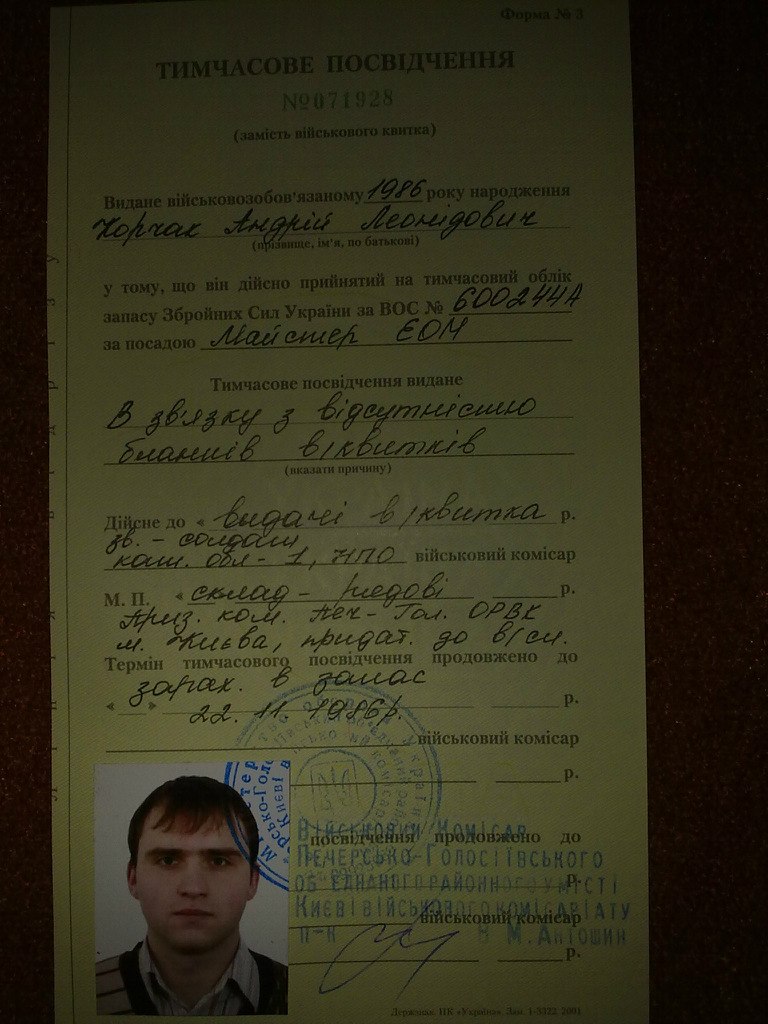 Форма № 3
ТИМЧАСОВЕ ПОСВІДЧЕННЯ
№071928
(замість військового квитка)
Видане військовозобов'язаному 1986 року народження
Корчак Андрій Леонідович
(прізвище, ім'я, по батькові)
у тому, що він дійсно прийнятий на тимчасовий облік
запасу Збройних Сил України за ВОС № 600244А
за посадою Майстер ЕОМ
Тимчасове посвідчення видане
В зв'язку з відсутністю
бланків в/квитків
(вказати причину)
Дійсне до « видачі в/квитка р.
зв. - солдат
кат. обл - 1, НПО військовий комісар
М. П. « склад - рядові р.
Приз. ком. Печ - Гол. ОРВК
м. Києва, придат. до в/сл.
Термін тимчасового посвідчення продовжено до
зарах. в запас
« » р.
22. 11. 1986р.
військовий комісар
р.
посвідчення продовжено до
Військовий комісар
Печерсько-Голосіївського
р.
об'єднаного районного у місті
Києві військового комісаріату
військовий комісар
п-к М. Антошин
р.
Держзнак. ПК «Україна». Зам. 1-3322. 2001